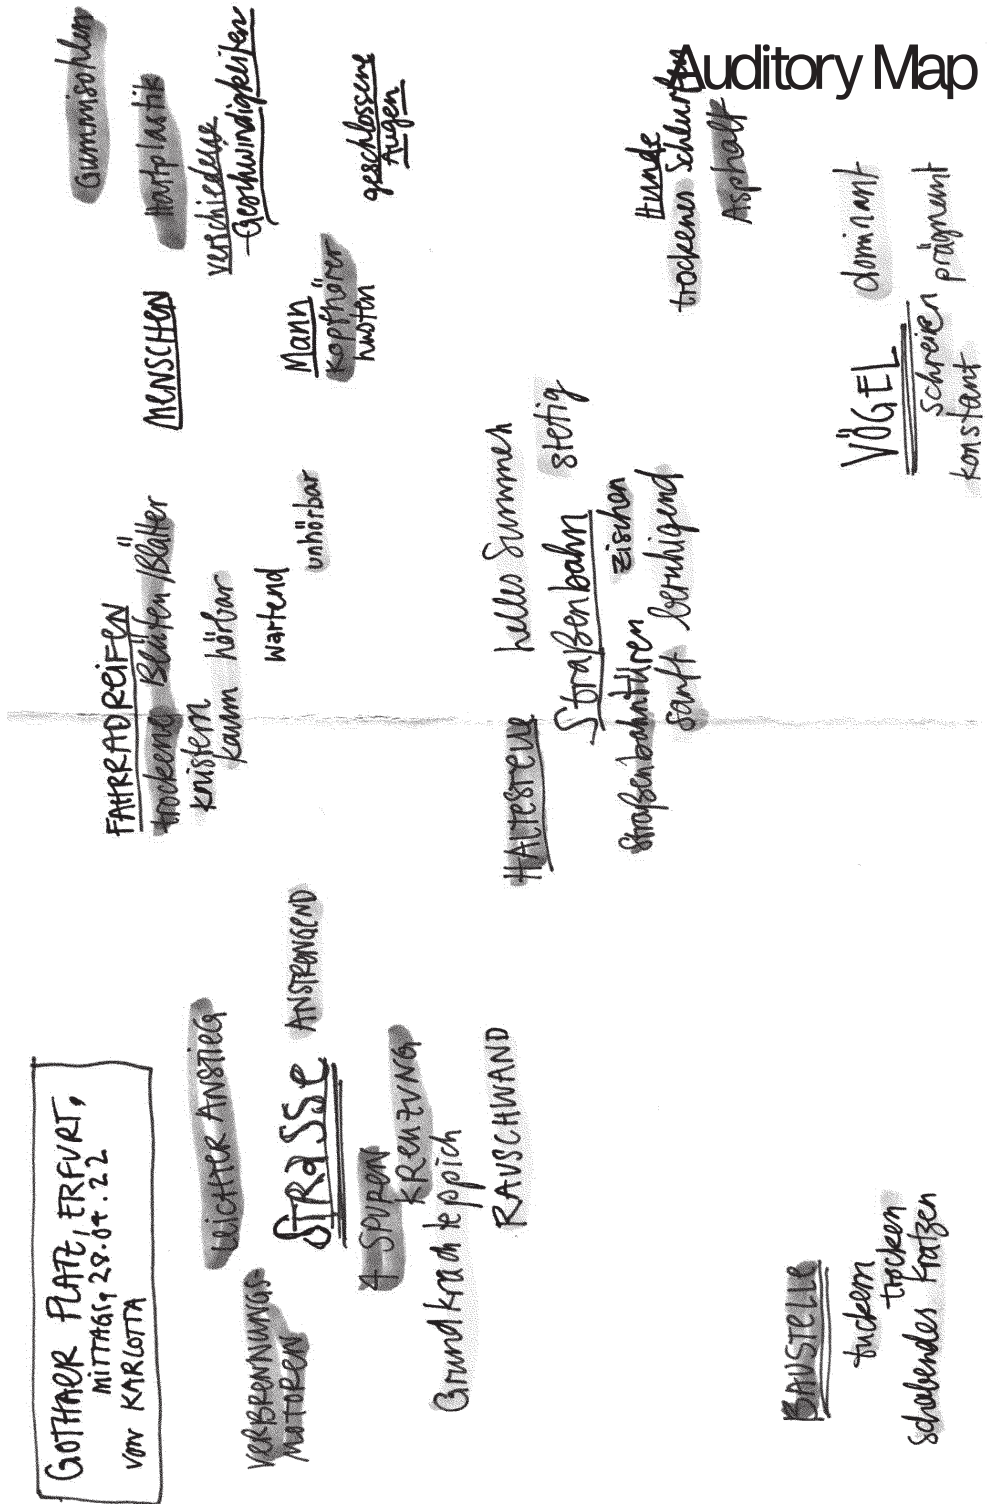 Auditory Map
GOTHAER PLATZ, ERFURT,
MITTAGS, 28.04.22
von KARLOTTA
LEICHTER ANSTIEG
VERBRENNUNGS-
MOTOREN
STRASSE
ANSTRENGEND
4 SPUREN
KREUZUNG
Grundkrachteppich
RAUSCHWAND
BAUSTELLE
tuckern
trocken
schabendes Kratzen
FAHRRADREIFEN
trockene Blüten/Blätter
knistern
kaum hörbar
wartend
unhörbar
HALTESTELLE
helles Summen
stetig
Straßenbahn
zischen
Straßenbahntüren
sanft beruhigend
MENSCHEN
Gummisohlen
Hartplastik
verschiedene
Geschwindigkeiten
Mann
Kopfhörer
husten
geschlossene
Augen
Hunde
trockenes Scheuern
Asphalt
VÖGEL
dominant
schreien
prägnant
konstant